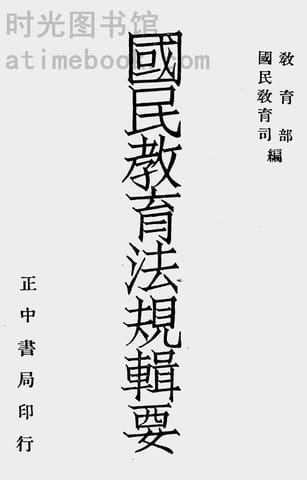 时光图书馆
atimebook.com
教育部
國民教育司編
國民教育法規輯要
正中書局印行